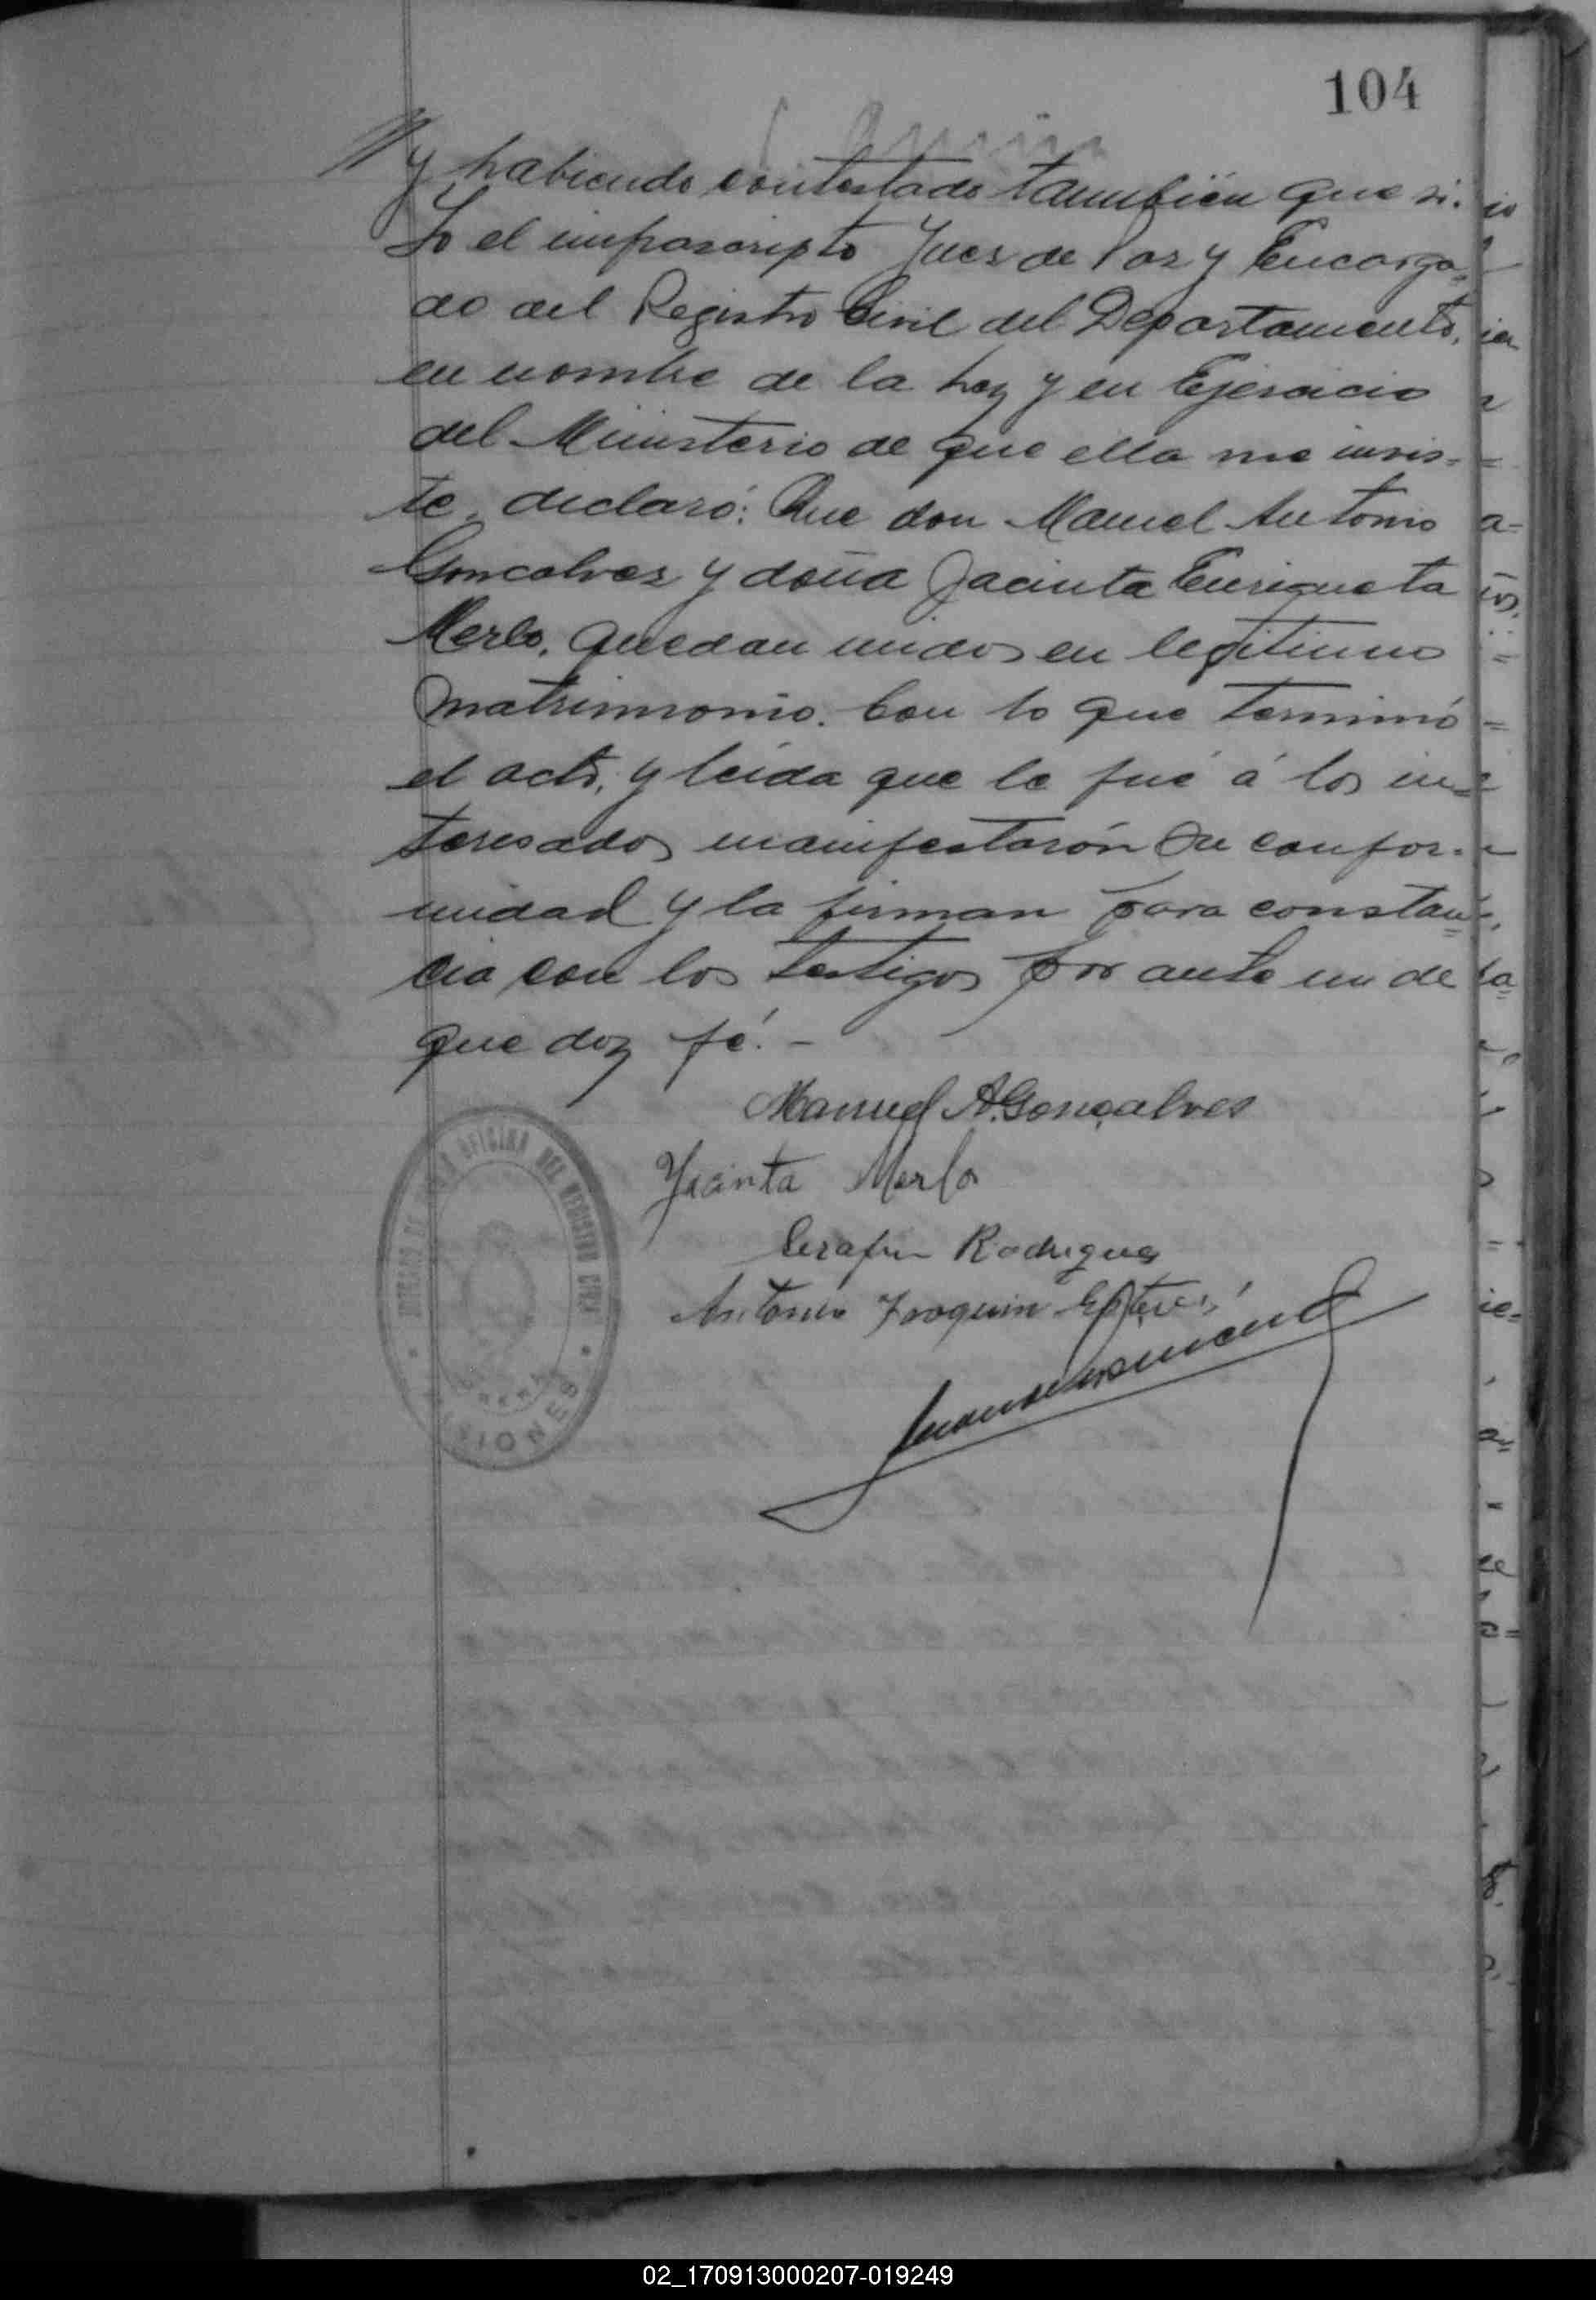 104
y habiendo contestado tambien que si.
Yo el infrascripto Juez de Paz y Encarga=
do del Registro Civil del Departamento,
en nombre de la Ley y en Ejercicio
del Ministerio de que ella me invis=
te, declaró: Que don Manuel Antonio
Goncalves y doña Jacinta Enriqueta
Merlo, quedan unidos en legitimo
matrimonio. Con lo que terminó
el acto, y leida que le fué á los in=
teresados manifestarón su confor-
midad y la firman para constan=
cia con los testigos por ante mi de
que doy fé. -
Manuel A. Gonçalves
Jacinta Merlo
Serafin Rodrigues
Antonio Joaquin Esteves
OFICINA DEL REGISTRO CIVIL
MISIONES
02_170913000207-019249